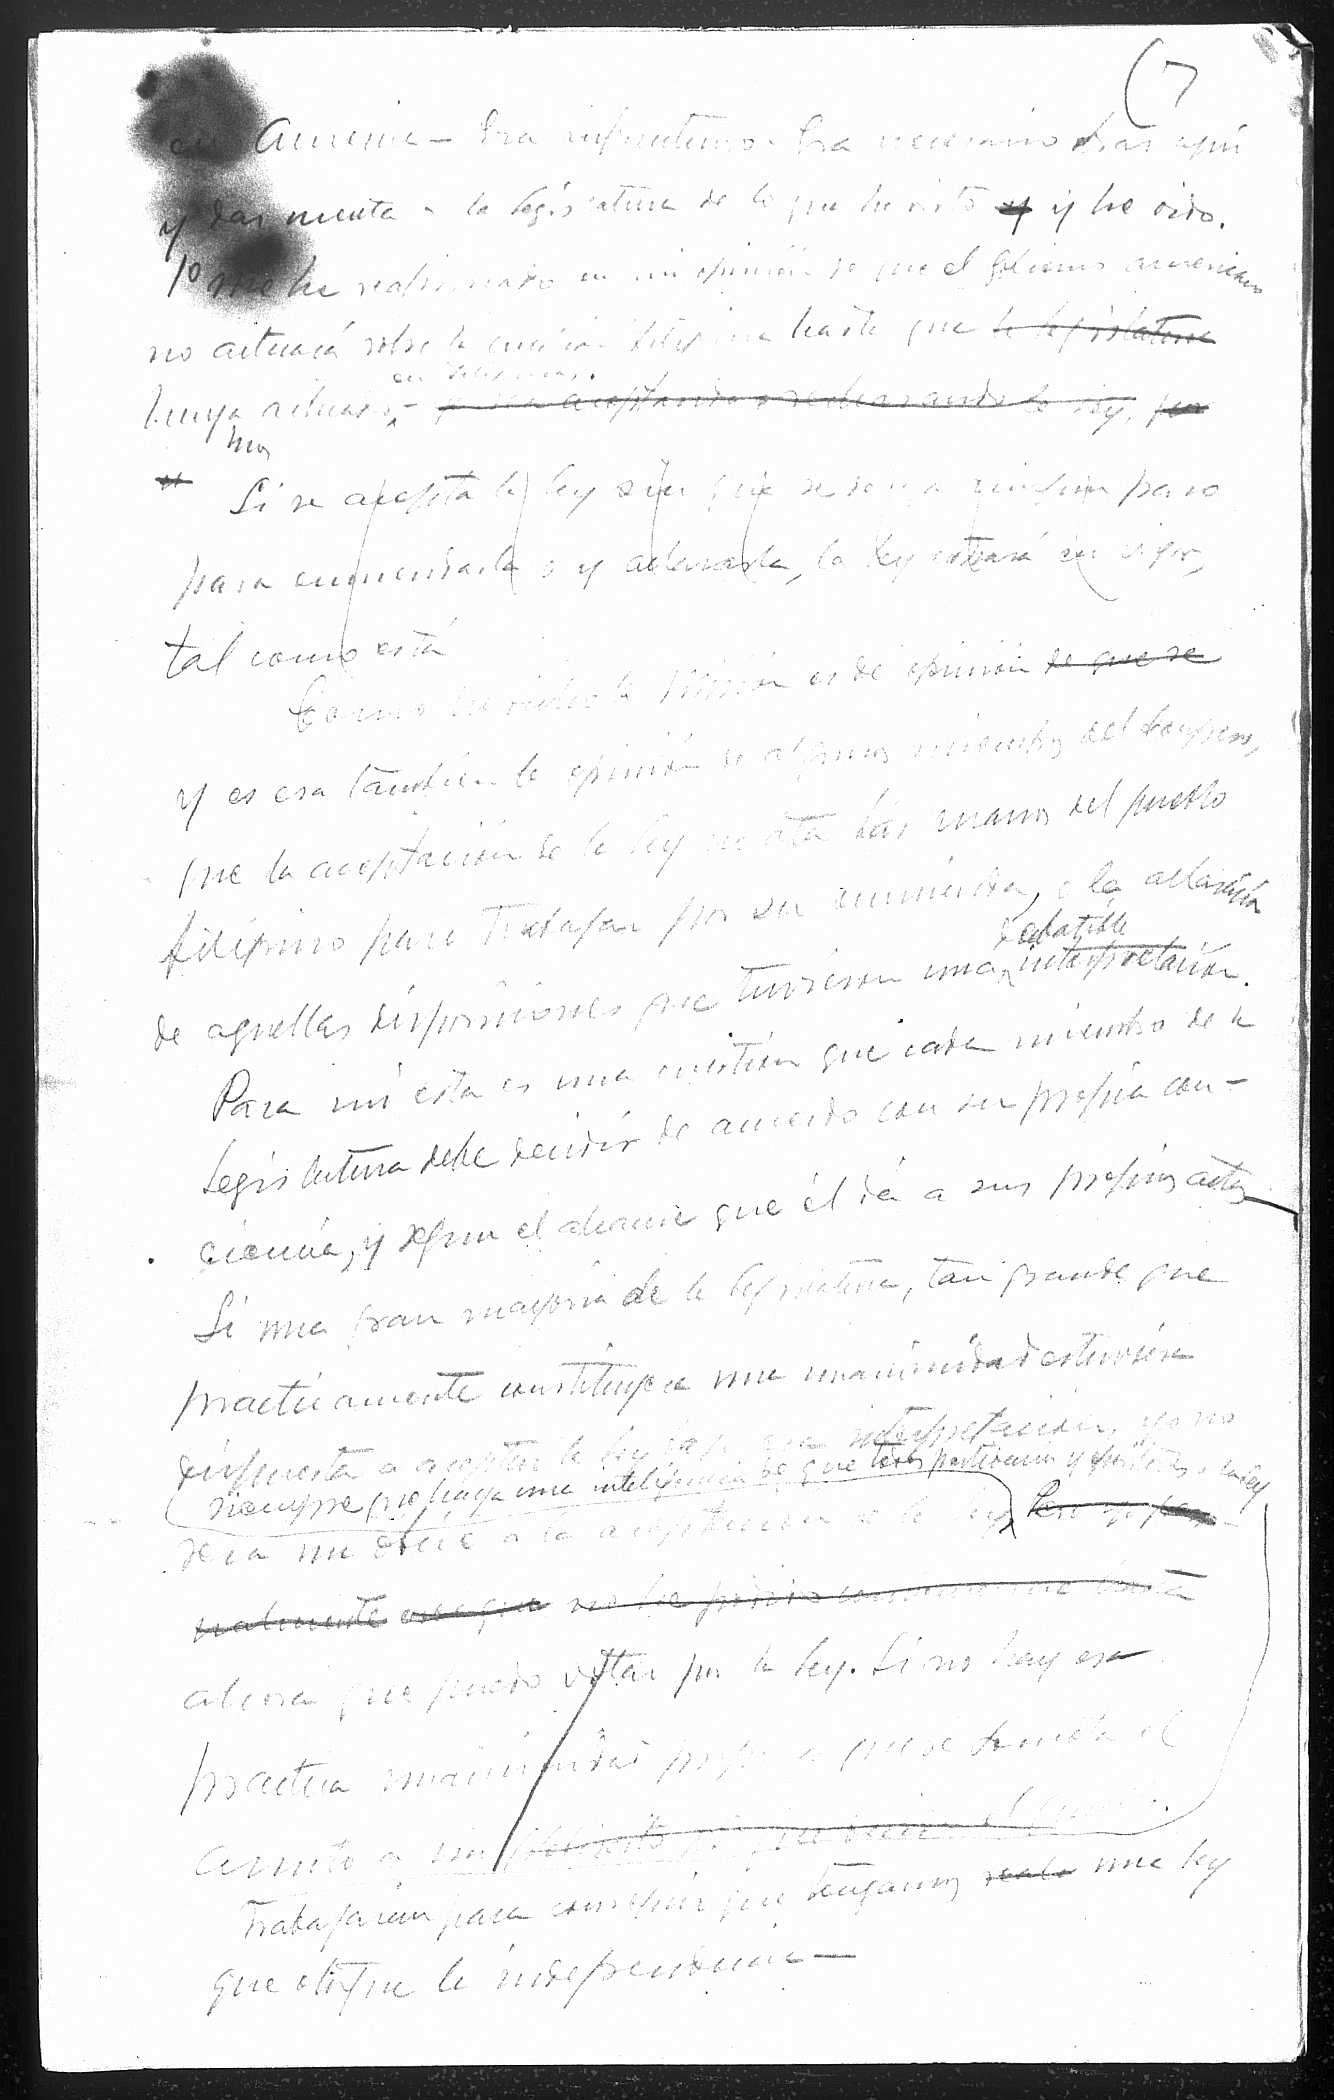 (7
en America — Era infructuoso. Era necesario estar aquí
y dar cuenta a la legislatura de lo que he visto y y he oido.
1º me he reafirmado en mi opinión de que el gobierno americano
no actuará sobre la cuestión filipina hasta que la legislatura
en Filipinas.
haya actuado, y sea aceptando o rechazando la ley, por
nos
Si se acepta la ley sin que se haya ningun paso
para enmendarla o y aclararla, la ley estará en vigor,
tal como está
Como he dicho la Misión es de opinión de que se
y es esa también la opinión de algunos miembros del Congreso,
que la aceptación de la ley no ata las manos del pueblo
filipino para trabajar por su enmienda, o la aclaración
debatible
de aquellas disposiciones que tuviesen una interpretación.
Para mi esta es una cuestión que cada miembro de la
Legislatura debe decidir de acuerdo con su propia con-
ciencia, y segun el alcance que él dá a sus propios actos
Si una gran mayoria de la legislatura, tan grande que
practicamente constituye una unanimidad estuviera
dispuesta a aceptar la ley bajo esa interpretación, yo no
siempre que haya una inteligencia de que todos
sería un obice a la aceptación de la ley, Pero yo perso-
nalmente creo que no he podido convencerme hasta
ahora que puedo votar por la ley. Si no hay esa
practica unanimidad
trabajarían para conseguir que tengamos una ley
que otorgue la independencia —